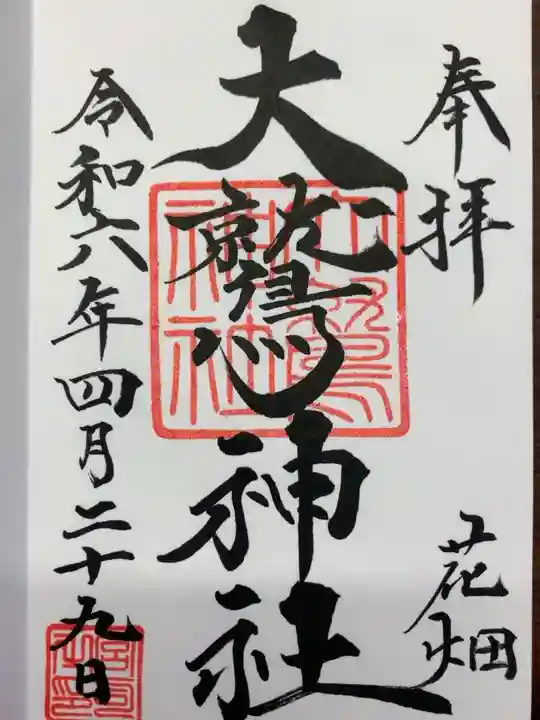 奉拝
花畑
大鷲神社
令和六年四月二十九日
大鷲
神社